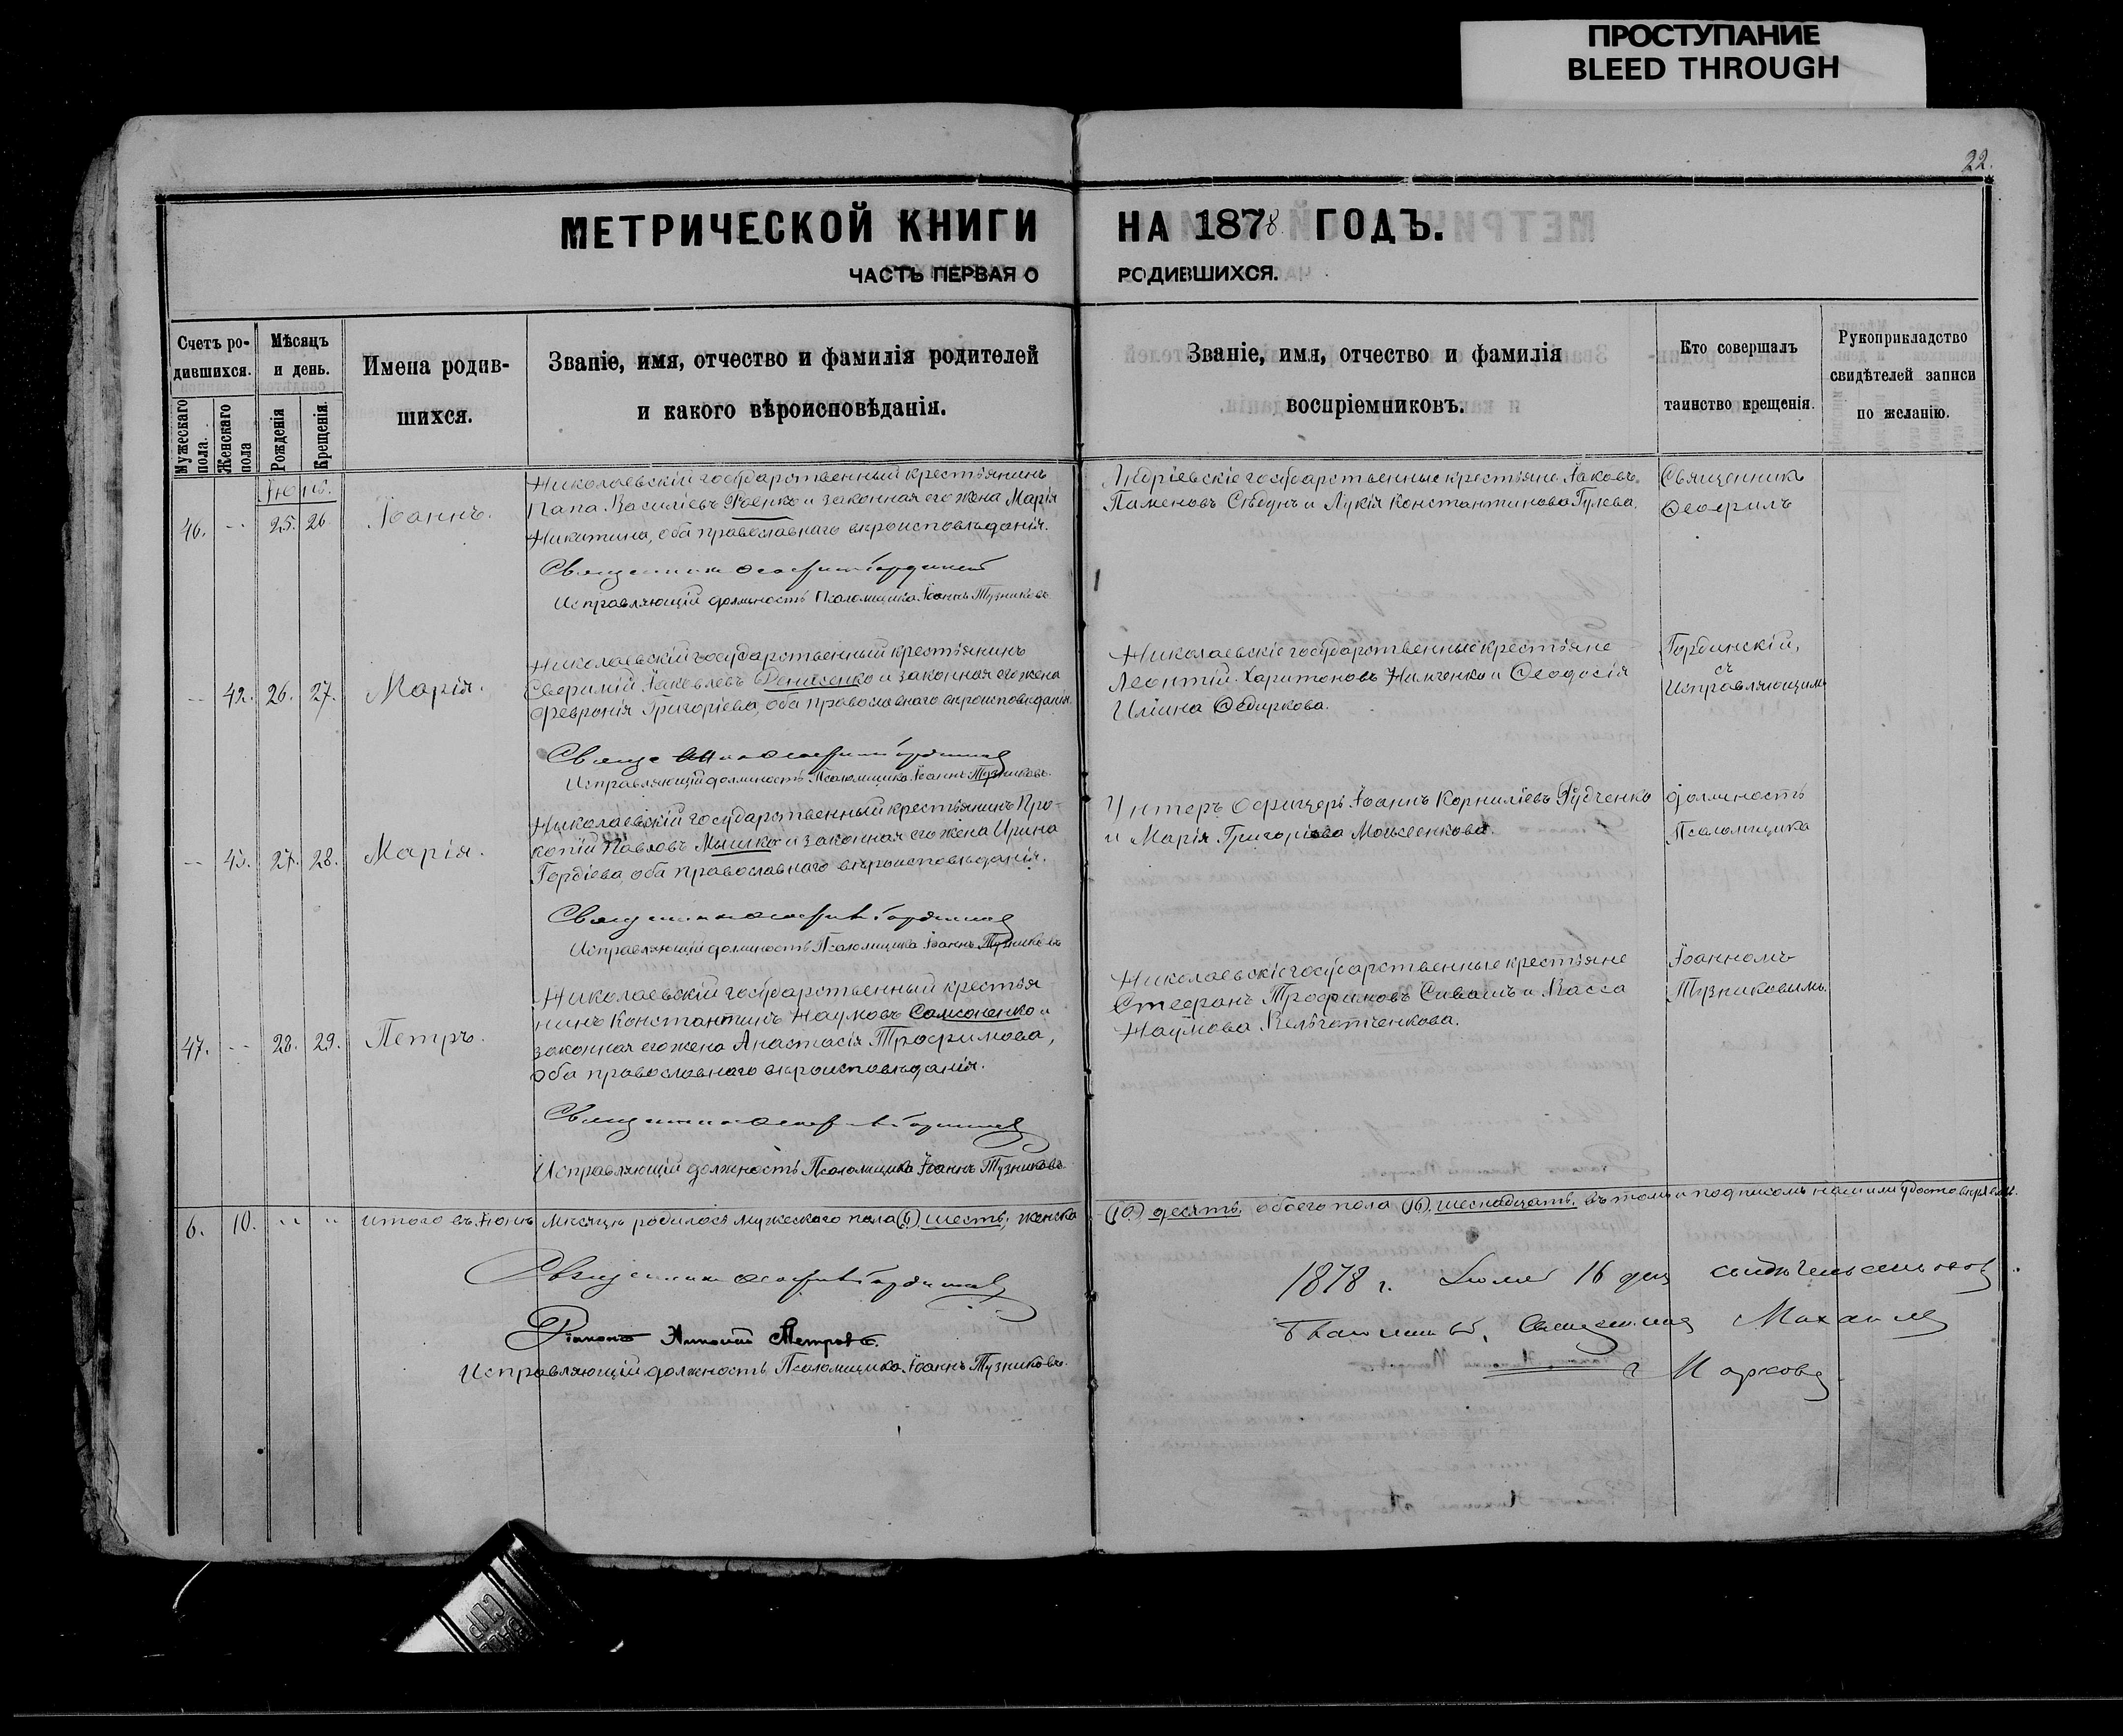 ПРОСТУПАНИЕ
BLEED THROUGH
22.
МЕТРИЧЕСКОЙ КНИГИ НА 1878 ГОДЪ.
ЧАСТЬ ПЕРВАЯ О РОДИВШИХСЯ.
Счетъ ро-
дившихся.
Мужескаго пола.
Женскаго пола
Мѣсяцъ
и день.
Рожденія
Крещенія.
Имена родив-
шихся.
Званіе, имя, отчество и фамилія родителей
и какого вѣроисповѣданія.
Званіе, имя, отчество и фамилія
воспріемниковъ.
Кто совершалъ
таинство крещенія.
Рукоприкладство
свидѣтелей записи
по желанію.
Іюнь.
46. -- 25. 26 Іоаннъ.
Николаевскій государственный крестьянинъ
Папа Василіевъ и законная его жена Марія
Никитина, оба православнаго вѣроисповѣданія.
Священникъ Ѳеофилъ Гординскій
Исправляющій должность Псаломщика Іоаннъ Тузниковъ
Андріевскіе государственные крестьяне Іаковъ
Паменовъ Сѣдунъ и Лукія Константинова Гулева.
Священникъ
Ѳеофилъ
-- 42. 26. 27. Марія.
Николаевскій государственный крестьянинъ
Евфимій Іаковлевъ Денисенко и законная его жена
Февронія Григоріева, оба православнаго вѣроисповѣданія.
Священникъ Ѳеофилъ Гординскій
Исправляющій должность Псаломщика Іоаннъ Тузниковъ.
Николаевскіе государственные крестьяне
Леонтій Харитоновъ Нимченко и Ѳеодосія
Иліина Ѳедиркова.
Гординскій,
съ
Исправляющимъ
-- 43. 27. 28. Марія.
Николаевскій государственный крестьянинъ Про-
копій Павловъ Мышко и законная его жена Ирина
Гордіева, оба православнаго вѣроисповѣданія.
Священникъ Ѳеофилъ Гординскій
Исправляющій должность Псаломщика Іоаннъ Тузниковъ
Унтеръ офицеръ Іоаннъ Корниліевъ Рудченко
и Марія Григоріева Моисеенкова.
должность
Псаломщика
47. -- 28. 29. Петръ.
Николаевскій государственный крестья
нинъ Константинъ Наумовъ Самсоненко и
законная его жена Анастасія Трофимова,
оба православнаго вѣроисповѣданія.
Священникъ Ѳеофилъ Гординскій
Исправляющій должность Псаломщика Іоаннъ Тузниковъ
Николаевскіе государственные крестьяне
Стефанъ Трофимовъ Сивашъ и Васса
Наумова
Іоанномъ
Тузниковымъ.
6. 10. " " итого въ Іюнѣ Мѣсяцѣ родилось мужескаго пола (6) шесть, женска (10) десять, обоего пола (16) шеснадцать. въ томъ и подписомъ нашимъ удостовѣряемъ.
Священникъ Ѳеофилъ Гординскій
Діаконъ Николай Петровъ.
Исправляющій должность Псаломщика Іоаннъ Тузниковъ.
1878 г. Іюля 16 дня свидѣтельствовалъ
Благочинный, Священникъ Михаилъ
Марковъ